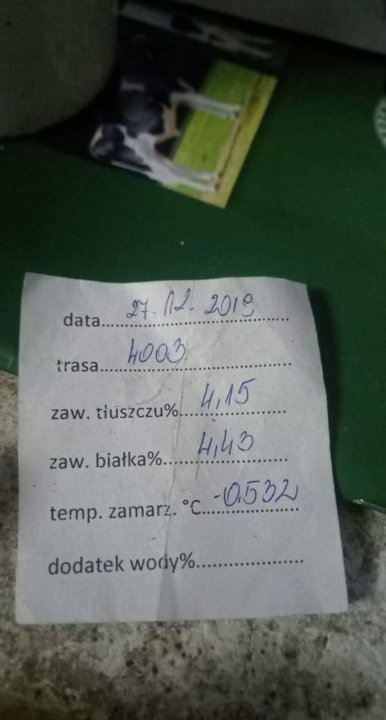 data......27.12.2019......
trasa......4003......
zaw. tłuszczu%......4,15......
zaw. białka%......4,43......
temp. zamarz. °C......-0.532......
dodatek wody%......